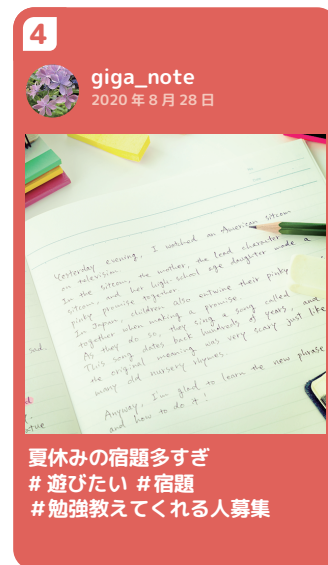 4
giga_note
2020年8月28日
Yesterday evening, I watched an American sitcom
on television.
In the sitcom, the mother, the lead character
sitcom, and her high-school age daughter made a
pinky promise together.
In Japan, children also entwine their pinky
together when making a promise.
As they do so, they sing a song called
This song dates back hundreds of years, and
the original meaning was very scary just like
many old nursery rhymes.
Anyway, I'm glad to learn the new phrase
and how to do it!
sad.
夏休みの宿題多すぎ
# 遊びたい # 宿題
# 勉強教えてくれる人募集